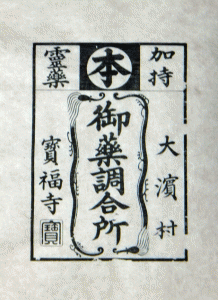 加持
本
靈藥
大濱村
御藥調合所
寶福寺
寶